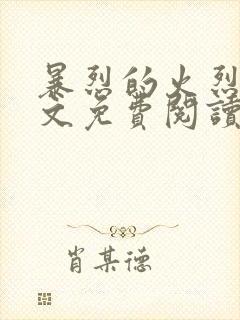 暴烈的火烈
文免費閱讀
肖某德